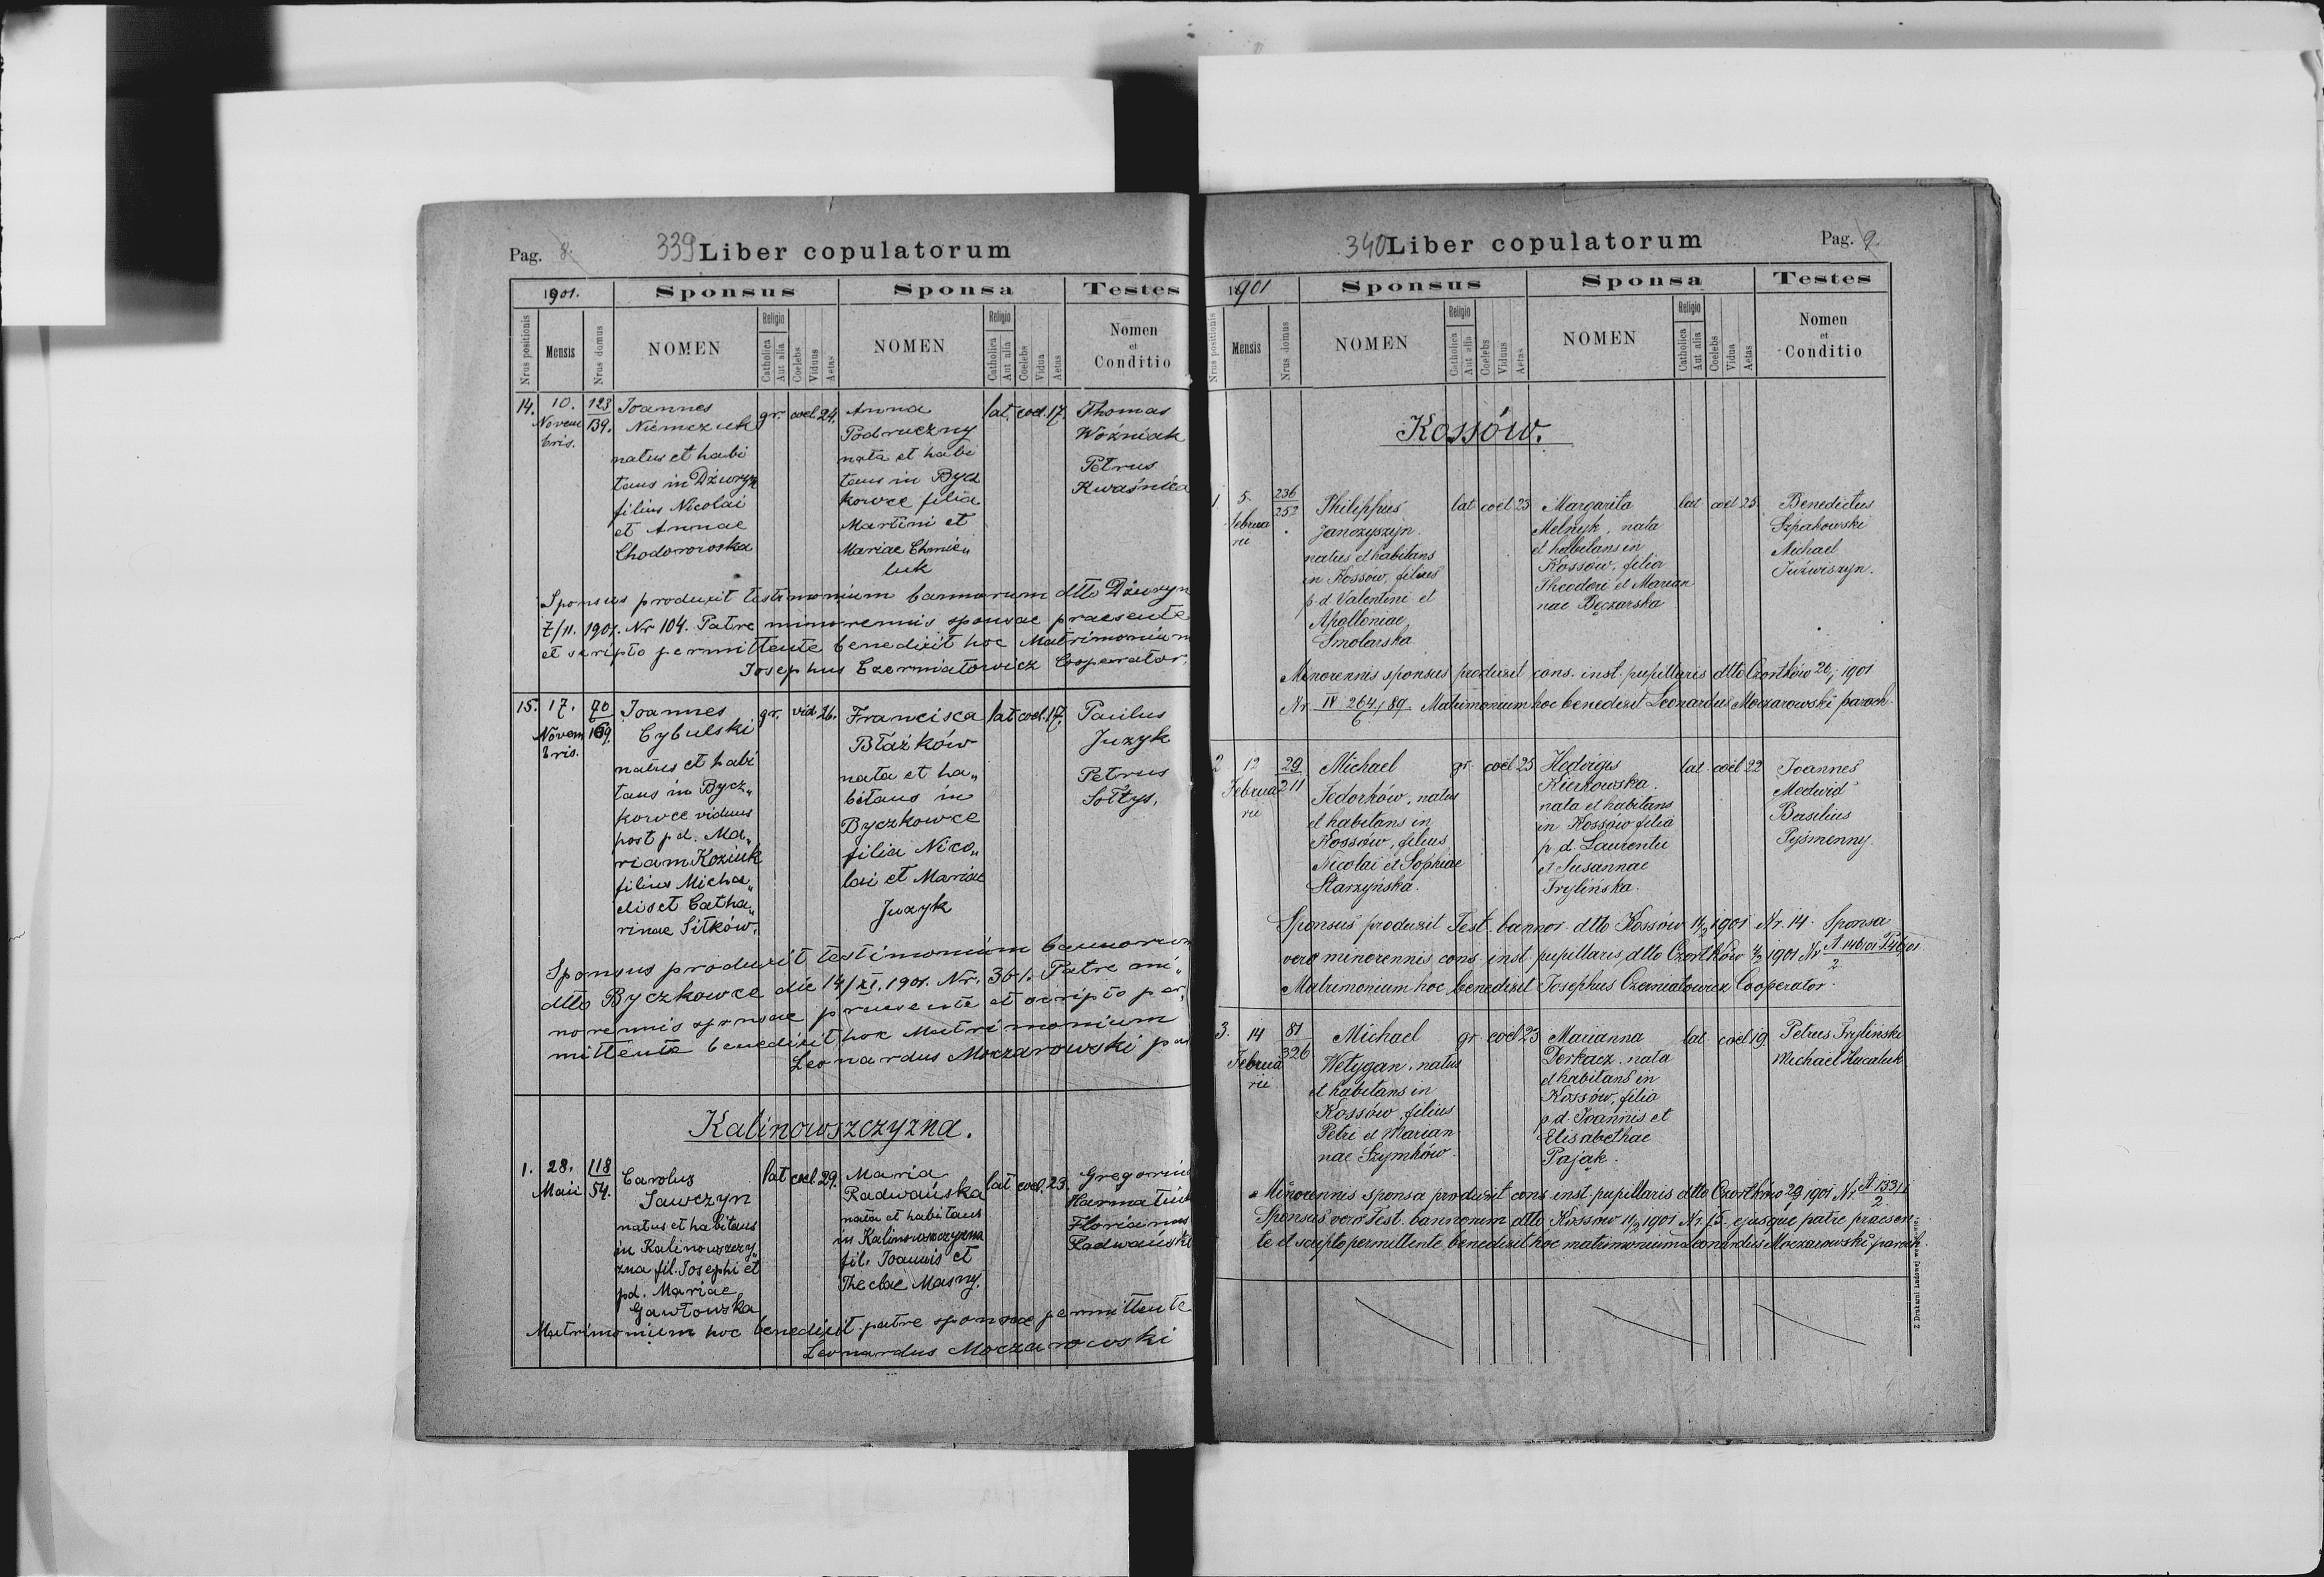 Pag. 8.
339 Liber copulatorum
1901.
Sponsus
Sponsa
Testes
Nrus positionis
Mensis
Nrus domus
NOMEN
Religio
Catholica
Aut alia
Coelebs
Viduus
Aetas
NOMEN
Religio
Catholica
Aut alia
Coelebs
Vidua
Aetas
Nomen
et
Conditio
14.
10.
Novem
bris.
123
139.
Joannes
Niemczuk
natus et habi
tans in Dżuryn
filius Nicolai
et Annae
Chodorowska
gr. coel. 24.
Anna
Podruczny
nata et habi
tans in Bycz
kowce filia
Martini et
Mariae Chomic„
luk
lat. coel. 17.
Thomas
Woźniak
Petrus
Kwaśnica
Sponsus produxit testimonium bannorum dtto Dżuryn
7/11. 1901. Nr 104. Patre minorennis sponsae praesente
et scripto permittente benedixit hoc Matrimonium
Josephus Czerniatowicz Cooperator.
15.
17.
Novem
bris.
70
169.
Joannes
Cybulski
natus et habi
tans in Bycz„
kowce viduus
post p d. Ma„
riam Koziuk
filius Micha„
elis et Catha„
rinae Sitków.
gr. vid. 26.
Francisca
Błażków
nata et ha„
bitans in
Byczkowce
filia Nico„
lai et Mariae
Juzyk
lat coel. 17.
Paulus
Juzyk
Petrus
Sołtys.
Sponsus produxit testimonium bannorum
dtto Byczkowce die 14/XI. 1901. Nr. 361. Patre mi„
norennis sponsae praesente et scripto per„
mittente benedixit hoc Matrimonium
Leonardus Moczarowski par
Kalinowszczyzna.
1.
28.
Maii
118
54.
Carolus
Sawczyn
natus et habitans
in Kalinowszczy„
zna fil. Josephi et
pd. Mariae
Gawłowska
lat coel. 29.
Maria
Radwańska
nata et habitans
in Kalinowszczyzna
fil. Joannis et
Theclae Masny.
lat coel. 23.
Gregorius
Harmatiuk
Florianus
Radwański
Matrimonium hoc benedixit patre sponsae permittente
Leonardus Moczarowski
340 Liber copulatorum
Pag. 9.
1901
Sponsus
Sponsa
Testes
Nrus positionis
Mensis
Nrus domus
NOMEN
Religio
Catholica
Aut alia
Coelebs
Viduus
Aetas
NOMEN
Religio
Catholica
Aut alia
Coelebs
Vidua
Aetas
Nomen
et
Conditio
Kossów.
1
5.
Februa
rii
236
252
Philippus
Janczyszyn
natus et habitans
in Kossów, filius
p d Valentini et
Apolloniae
Smolarska
lat coel 23
Margarita
Melnyk nata
et habitans in
Kossów, filia
Theodori et Marian
nae Bęczarska
lat coel 25
Benedictus
Szpakowski
Michael
Juźwiszyn.
Minorennis sponsus produxit cons. inst. pupillaris dtto Czortków 20/1 1901
Nr. IV 264/89
6
Matrimonium hoc benedixit Leonardus Moczarowski paroch.
2
12
Februa
rii
29
211
Michael
Fedorków, natus
et habitans in
Kossów, filius
Nicolai et Sophiae
Starzyńska.
gr. coel 25
Hedvigis
Kierkowska.
nata et habitans
in Kossów filia
p d. Laurentii
et Susannae
Trylińska.
lat coel 22
Joannes
Medwid
Basilius
Pyśmenny
Sponsus produxit Test. bannor. dtto Kossów 11/2 1901 Nr. 14. Sponsa
vero minorennis cons. inst. pupillaris dtto Czortków 4/2 1901 Nr
2
Matrimonium hoc benedixit Josephus Czerniatowicz Cooperator.
3.
14
Februa
rii
81
326
Michael
Wetygan, natus
et habitans in
Kossów, filius
Petri et Marian
nae Szymków.
gr. coel 23
Marianna
Derkacz nata
et habitans in
Kossów, filia
p d. Joannis et
Elisabethae
Pająk.
lat coel 19
Petrus Tryliński
Michael Hucaluk
Minorennis sponsa produxit cons. inst. pupillaris dtto Czortków 29/1 1901 Nr.
2
Sponsus vero Test. bannorum dtto Kossów 11/2 1901 Nr. 15. ejusque patre praesen
te et scripto permittente benedixit hoc matrimonium Leonardus Moczarowski paroch.
Z Drukarni Ludowej we